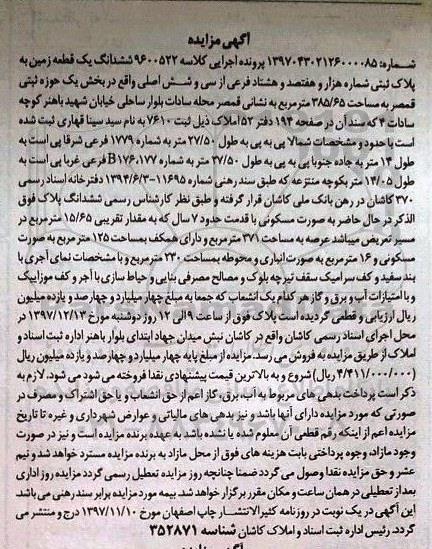 آگهی مزایده
شماره: ۱۳۹۷۰۴۳۰۲۱۲۶۰۰۰۰۸۵ پرونده اجرایی کلاسه ۹۶۰۰۵۲۲ ششدانگ یک قطعه زمین به
پلاک ثبتی شماره هزار و هفتصد و هشتاد فرعی از سی و شش اصلی واقع در بخش یک حوزه ثبتی
قمصر به مساحت ۳۸۵/۶۵ مترمربع به نشانی قمصر محله سادات بلوار ساحلی خیابان شهید باهنر کوچه
سادات ۴ که سند آن در صفحه ۱۹۴ دفتر ۵۲ املاک ذیل ثبت ۷۶۱۰ به نام سید سینا قهاری ثبت شده
است با حدود و مشخصات شمالا پی به پی به طول ۲۷/۵۰ متر به شماره ۱۷۷۹ فرعی شرقا پی است به
طول ۱۴ متر به جاده جنوبا پی به پی به طول ۲۷/۵۰ متر به شماره B۱۷۶،۱۷۷ فرعی غربا پی است به
طول ۱۴/۰۵ متر بکوچه منتزعه که طبق سند رهنی شماره ۱۱۶۹۵-۱۳۹۴/۶/۳ دفترخانه اسناد رسمی
۳۷۰ کاشان در رهن بانک ملی کاشان قرار گرفته و طبق نظر کارشناس رسمی ششدانگ پلاک فوق
الذکر در حال حاضر به صورت مسکونی با قدمت حدود ۷ سال که به مقدار تقریبی ۱۵/۶۵ مترمربع در
مسیر تعریض میباشد عرصه به مساحت ۳۷۱ مترمربع و دارای همکف بمساحت ۱۲۵ متر مربع به صورت
مسکونی و ۱۶ مترمربع به صورت انباری و محوطه بمساحت ۲۳۰ مترمربع و با مشخصات نمای آجری با
بند سفید و کف سرامیک سقف تیرچه بلوک و مصالح مصرفی بنایی و حیاط سازی با آجر و کف موزاییک
و با امتیازات آب و برق و گاز هر کدام یک انشعاب که جمعا به مبلغ چهار میلیارد و چهارصد و یازده میلیون
ریال ارزیابی و قطعی گردیده است پلاک فوق از ساعت ۹ الی ۱۲ روز دوشنبه مورخ ۱۳۹۷/۱۲/۱۳ در
محل اجرای اسناد رسمی کاشان واقع در کاشان نبش میدان جهاد ابتدای بلوار باهنر اداره ثبت اسناد و
املاک از طریق مزایده به فروش می رسد. مزایده از مبلغ پایه چهار میلیارد و چهارصد و یازده میلیون ریال
(۴/۴۱۱/۰۰۰/۰۰۰ ریال) شروع و به بالاترین قیمت پیشنهادی نقدا فروخته می شود می شود. لازم به
ذکر است پرداخت بدهی های مربوط به آب، برق، گاز اعم از حق انشعاب و یا حق اشتراک و مصرف در
صورتی که مورد مزایده دارای آنها باشد و نیز بدهی های مالیاتی و عوارض شهرداری و غیره تا تاریخ
مزایده اعم از اینکه رقم قطعی آن معلوم شده یا نشده باشد به عهده برنده مزایده است و نیز در صورت
وجود مازاد، وجوه پرداختی بابت هزینه های فوق از محل مازاد به برنده مزایده مسترد خواهد شد و نیم
عشر و حق مزایده نقدا وصول می گردد ضمنا چنانچه روز مزایده تعطیل رسمی گردد مزایده روز اداری
بعد از تعطیلی در همان ساعت و مکان مقرر برگزار خواهد شد. بیمه مورد مزایده برابر سند رهنی می باشد.
این آگهی در یک نوبت در روزنامه کثیرالانتشار چاپ اصفهان مورخ ۱۳۹۷/۱۱/۱۰ درج و منتشر می
گردد. رئیس اداره ثبت اسناد و املاک کاشان شناسه ۳۵۲۸۷۱